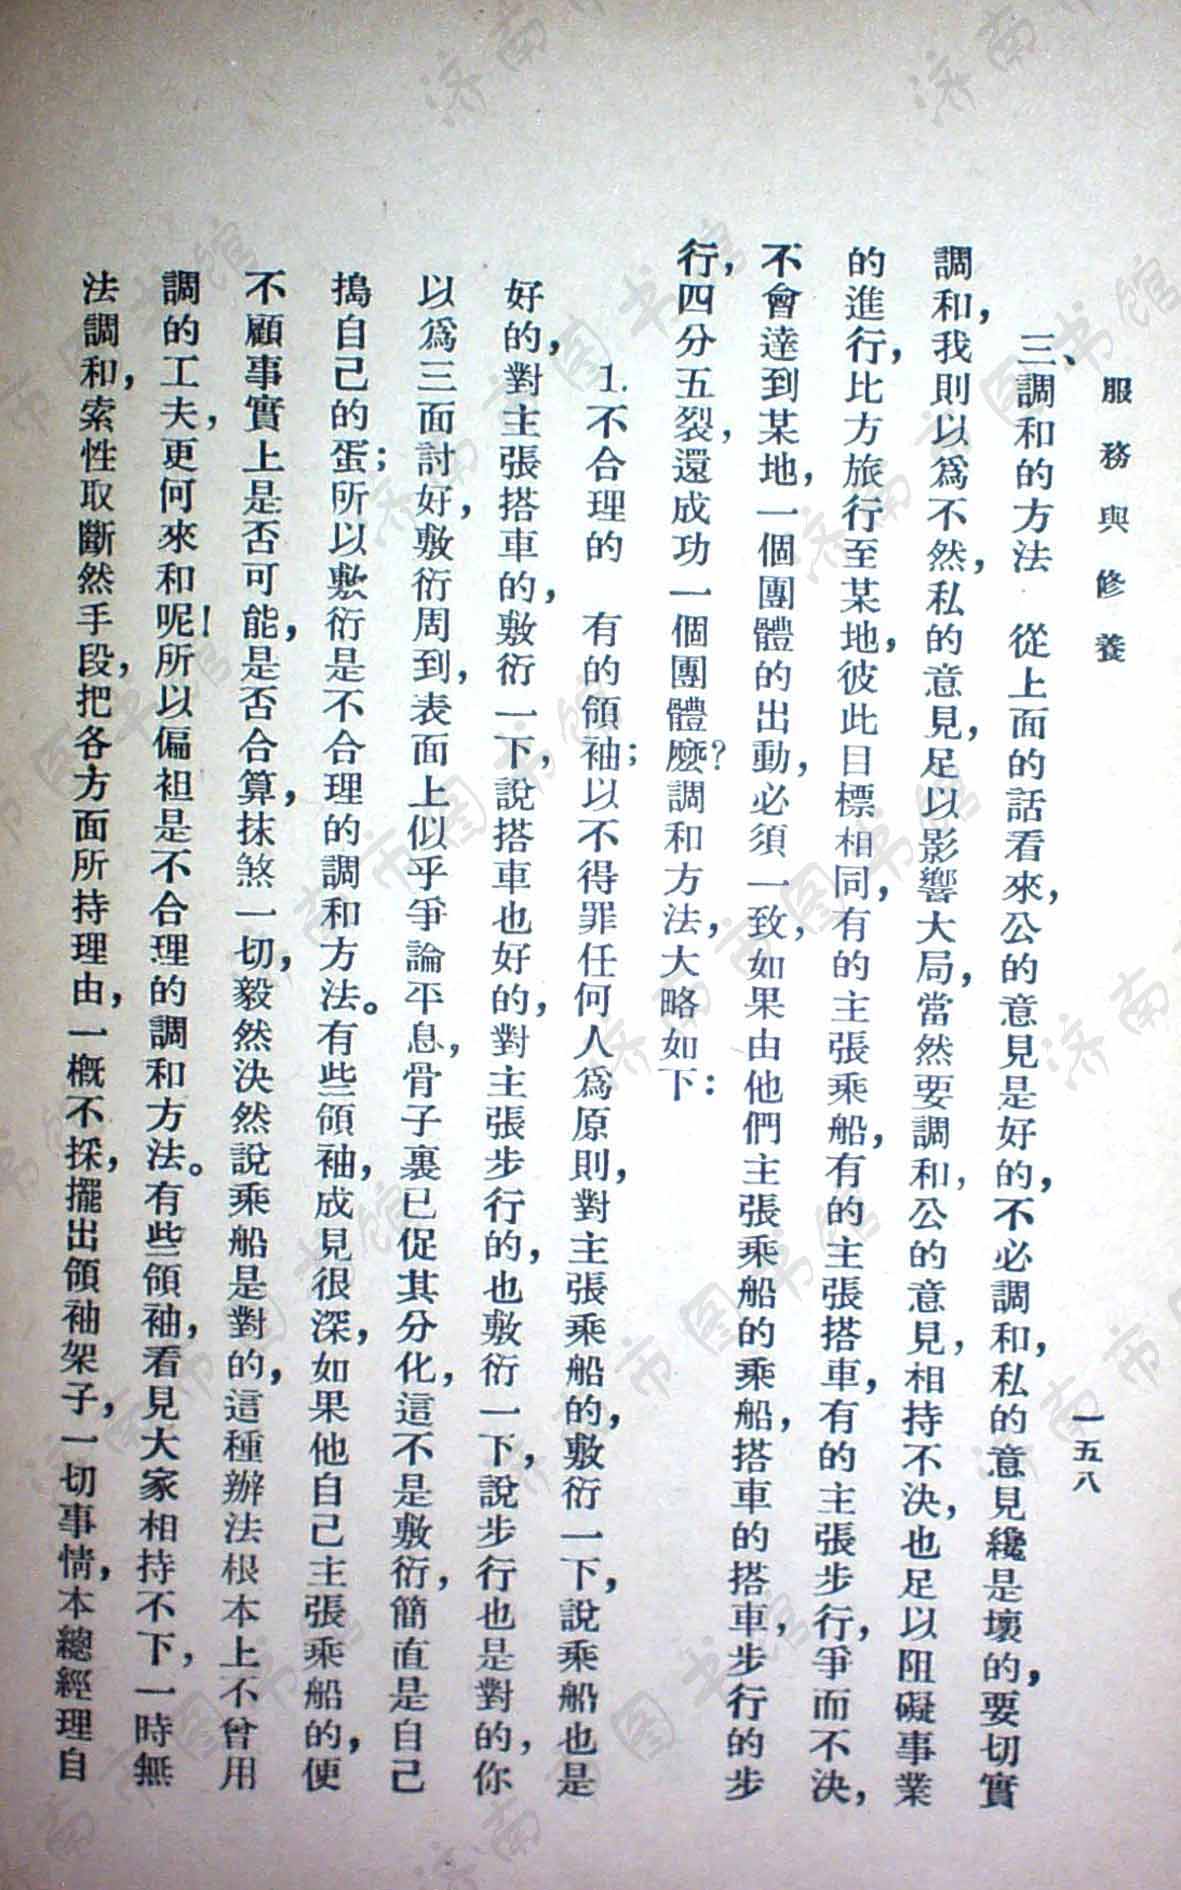 服務與修養
一五八
三、調和的方法　從上面的話看來，公的意見是好的，不必調和，私的意見纔是壞的，要切實
調和，我則以爲不然，私的意見，足以影響大局，當然要調和，公的意見，相持不決，也足以阻礙事業
的進行，比方旅行至某地，彼此目標相同，有的主張乘船，有的主張搭車，有的主張步行，爭而不決，
不會達到某地，一個團體的出動，必須一致，如果由他們主張乘船的乘船，搭車的搭車，步行的步
行，四分五裂，還成功一個團體麼？調和方法，大略如下：
1.不合理的　有的領袖；以不得罪任何人爲原則，對主張乘船的，敷衍一下，說乘船也是
好的，對主張搭車的，敷衍一下，說搭車也好的，對主張步行的，也敷衍一下，說步行也是對的，你
以爲三面討好，敷衍周到，表面上似乎爭論平息，骨子裏已促其分化，這不是敷衍，簡直是自己
搗自己的蛋；所以敷衍是不合理的調和方法。有些領袖，成見很深，如果他自己主張乘船的，便
不顧事實上是否可能，是否合算，抹煞一切，毅然決然說乘船是對的，這種辦法根本上不曾用
調的工夫，更何來和呢！所以偏袒是不合理的調和方法。有些領袖，看見大家相持不下，一時無
法調和，索性取斷然手段，把各方面所持理由，一概不採，擺出領袖架子，一切事情，本總經理自
濟南市图书馆